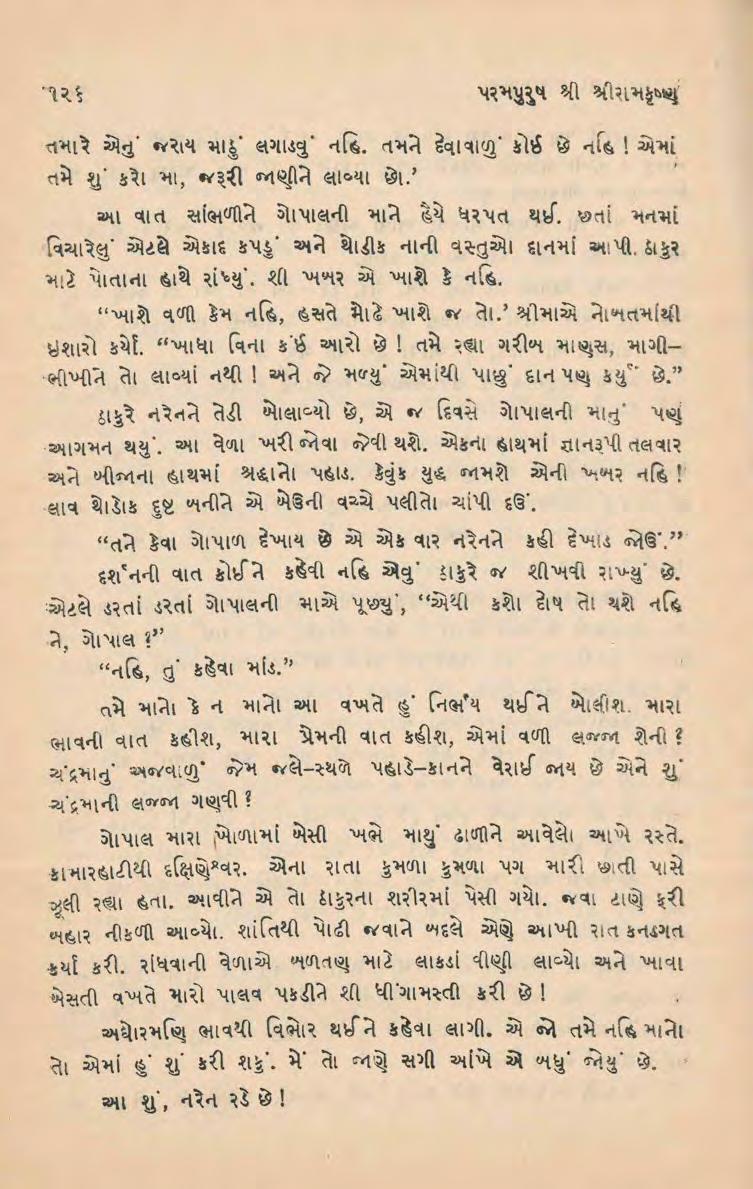 ૧૨૬ પરમપુરુષ શ્રી શ્રીરામકૃષ્ણ
તમારે એનું જરાય માઠું લગાડવું નહિ. તમને દેવાવાળું કોઈ છે નહિ ! એમાં
તમે શું કરો મા, જરૂરી જાણીને લાવ્યા છો.’
આ વાત સાંભળીને ગોપાલની માને હૈયે ધરપત થઈ. છતાં મનમાં
વિચારેલું એટલે એકાદ કપડું અને થોડીક નાની વસ્તુઓ દાનમાં આપી. ઠાકુર
માટે પોતાના હાથે રાંધ્યું. શી ખબર એ ખાશે કે નહિ.
“ખાશે વળી કેમ નહિ, હસતે મોઢે ખાશે જ તો.’ શ્રીમાએ નોબતમાંથી
ઇશારો કર્યો. “ખાધા વિના કંઈ આરો છે ! તમે રહ્યા ગરીબ માણુસ, માગી–
ભીખીને તો લાવ્યાં નથી ! અને જે મળ્યું એમાંથી પાછું દાન પણ કર્યું છે.”
ઠાકુરે નરેનને તેડી બોલાવ્યો છે, એ જ દિવસે ગોપાલની માનું પણું
આગમન થયું. આ વેળા ખરી જોવા જેવી થશે. એકના હાથમાં જ્ઞાનરૂપી તલવાર
અને બીજાના હાથમાં શ્રદ્ધાનો પહાડ. કેવુંક યુદ્ધ જામશે એની ખબર નહિ !
લાવ થોડોક દુષ્ટ બનીને એ બેઉની વચ્ચે પલીતો ચાંપી દઉં.
“તને કેવા ગોપાળ દેખાય છે એ એક વાર નરેનને કહી દેખાડ જોઉં.”
દર્શનની વાત કોઈને કહેવી નહિ એવું ઠાકુરે જ શીખવી રાખ્યું છે.
એટલે ડરતાં ડરતાં ગોપાલની માએ પૂછ્યું, “એથી કશો દોષ તો થશે નહિ
ને, ગોપાલ ?”
“નહિ, તું કહેવા માંડ.”
તમે માનો કે ન માનો આ વખતે હું નિર્ભય થઈને બોલીશ. મારા
ભાવની વાત કહીશ, મારા પ્રેમની વાત કહીશ, એમાં વળી લજ્જા શેની ?
ચંદ્રમાનું અજવાળું જેમ જલે–સ્થળે પહાડે–કાનને વેરાઈ જાય છે એને શું
ચંદ્રમાની લજ્જા ગણવી ?
ગોપાલ મારા ખોળામાં બેસી ખભે માથું ઢાળીને આવેલો આખે રસ્તે.
કામારહાટીથી દક્ષિણેશ્વર. એના રાતા કુમળા કુમળા પગ મારી છાતી પાસે
ઝૂલી રહ્યા હતા. આવીને એ તો ઠાકુરના શરીરમાં પેસી ગયો. જવા ટાણે ફરી
બહાર નીકળી આવ્યો. શાંતિથી પોઢી જવાને બદલે એણે આખી રાત કનડગત
કર્યા કરી. રાંધવાની વેળાએ બળતણ માટે લાકડાં વીણી લાવ્યો અને ખાવા
બેસતી વખતે મારો પાલવ પકડીને શી ધીંગામસ્તી કરી છે !
અઘોરમણિ ભાવથી વિભોર થઈને કહેવા લાગી. એ જો તમે નહિ માનો
તો એમાં હું શું કરી શકું. મેં તો જાણે સગી આંખે એ બધું જોયું છે.
આ શું, નરેન રડે છે !